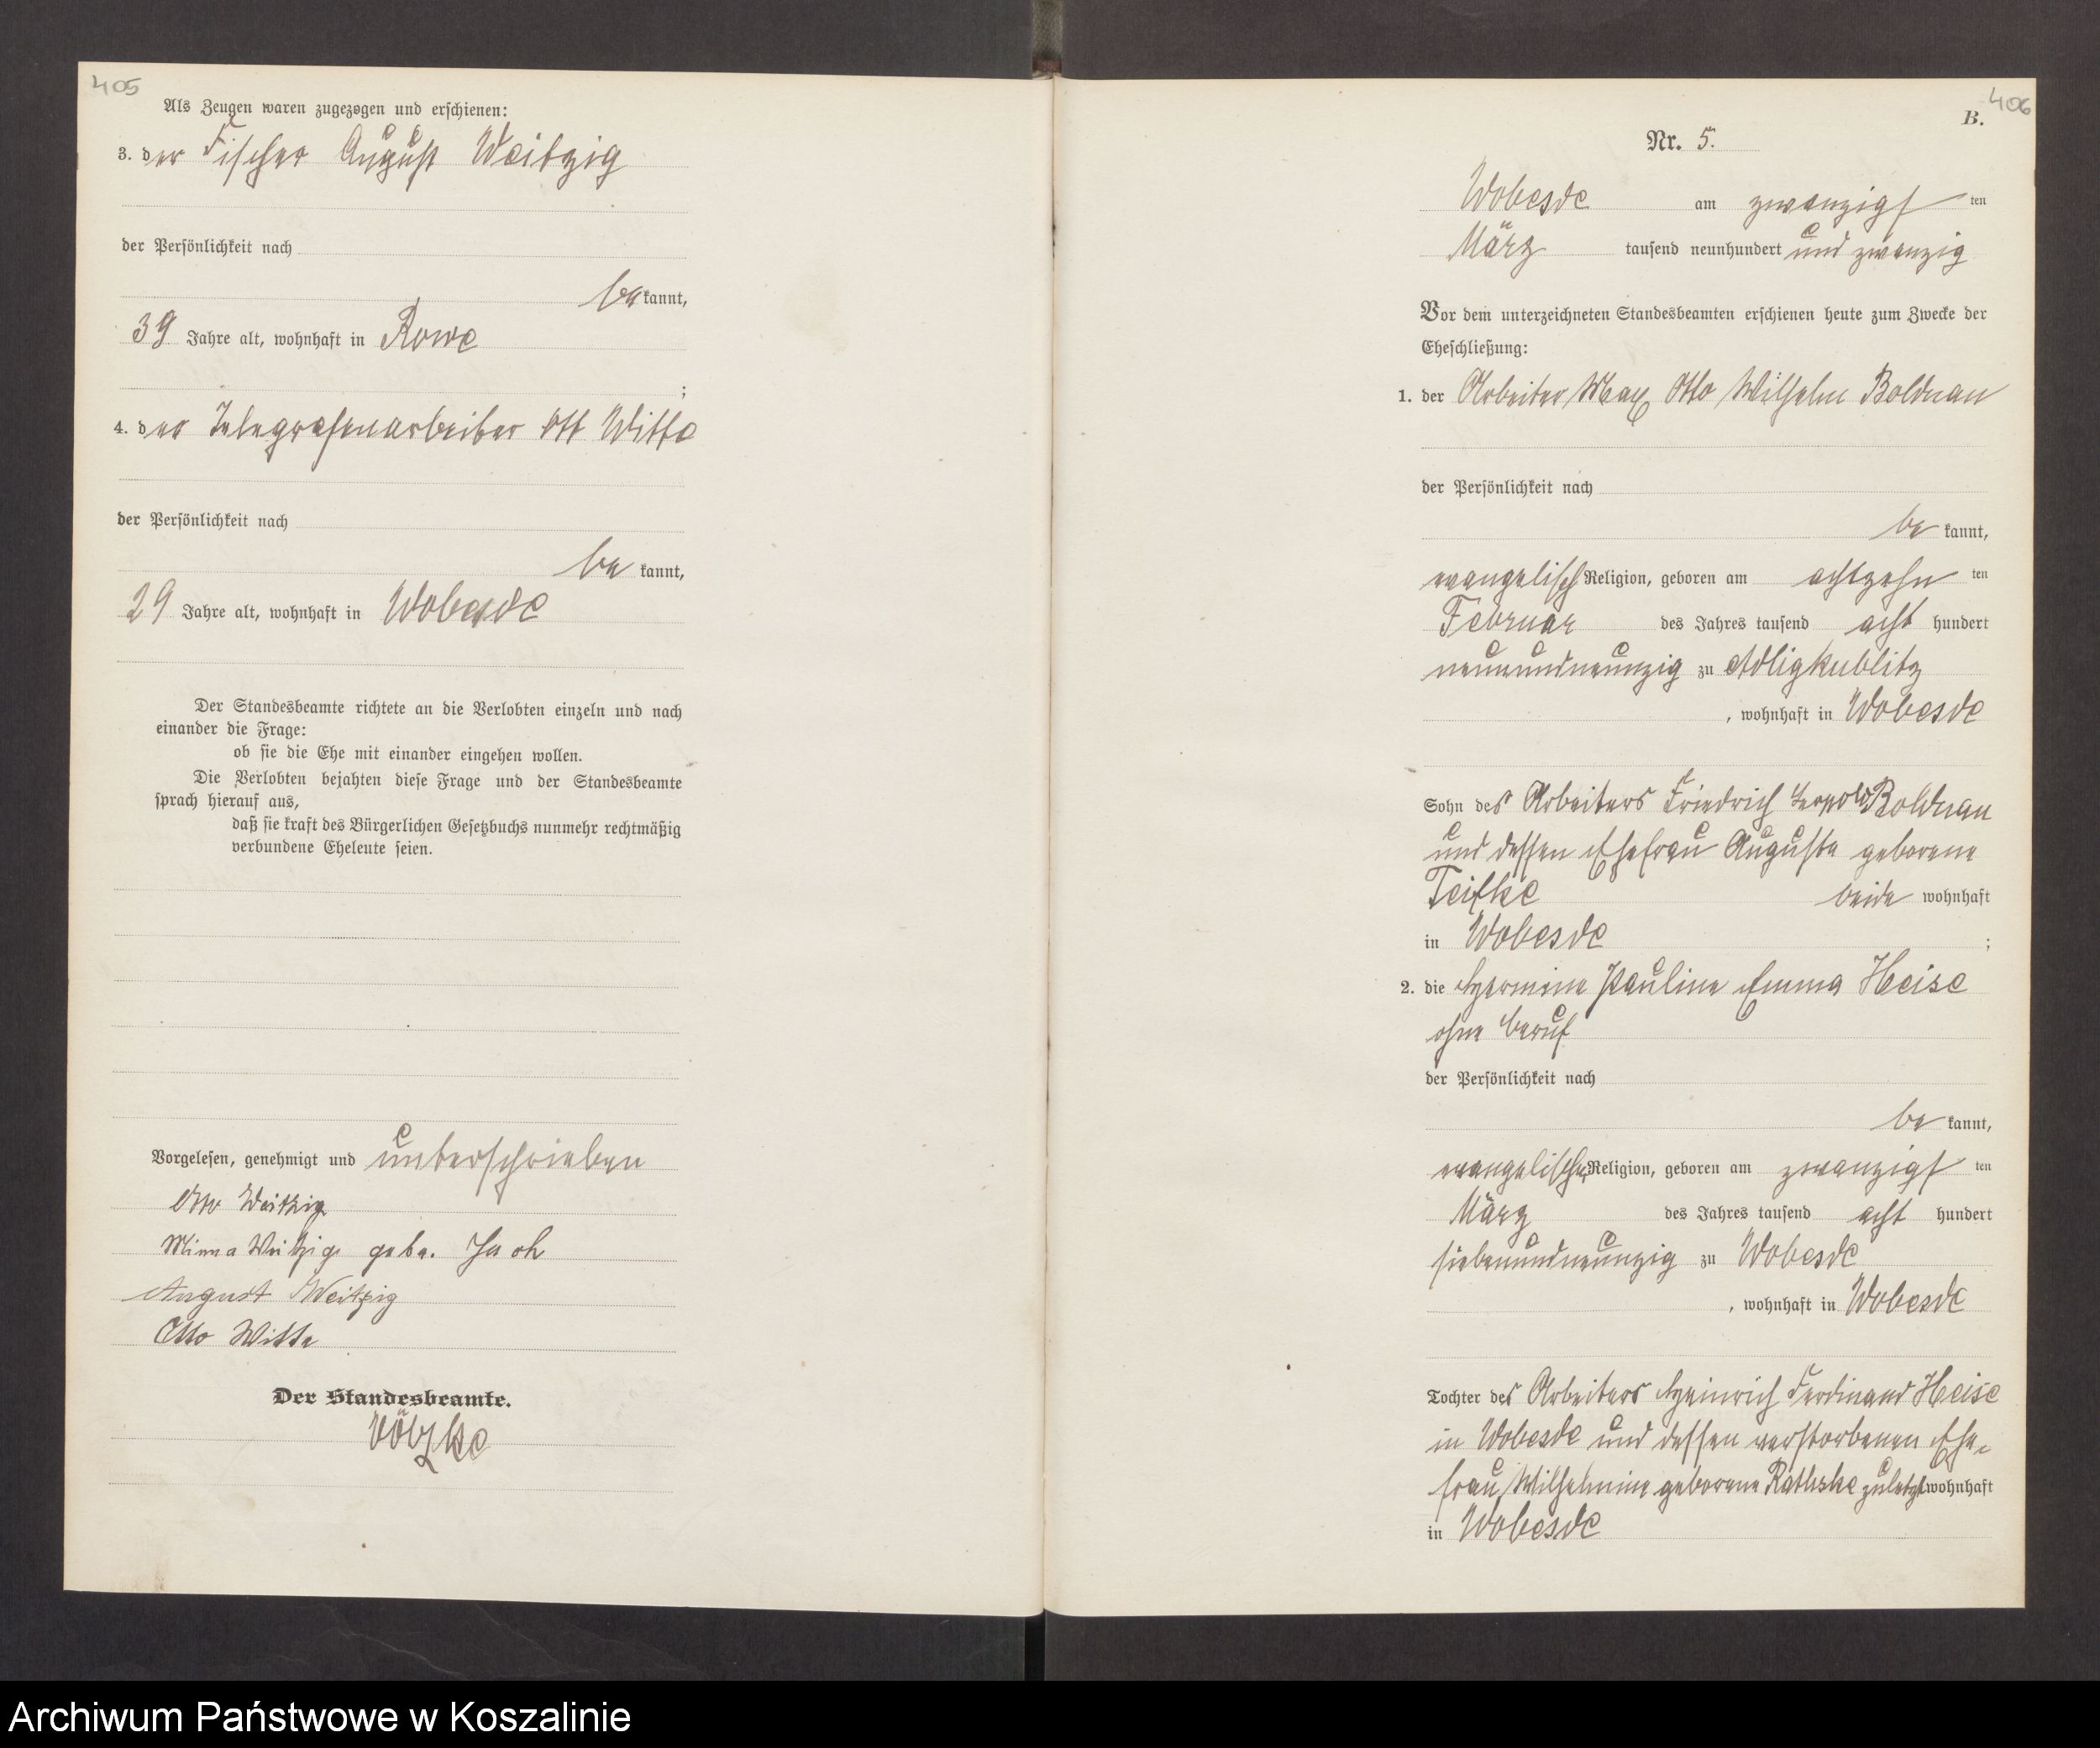 405
Als Zeugen waren zugezogen und erschienen:
3. der Fischer August Weitzig
der Persönlichkeit nach
bekannt,
39 Jahre alt, wohnhaft in Rowe
;
4. der Telegrafenarbeiter Ott Witte
der Persönlichkeit nach
bekannt,
29 Jahre alt, wohnhaft in Wobesde
Der Standesbeamte richtete an die Verlobten einzeln und nach
einander die Frage:
ob sie die Ehe mit einander eingehen wollen.
Die Verlobten bejahten diese Frage und der Standesbeamte
sprach hierauf aus,
daß sie kraft des Bürgerlichen Gesetzbuchs nunmehr rechtmäßig
verbundene Eheleute seien.
Vorgelesen, genehmigt und unterschrieben
Otto Weitzig
Minna Weitzig gebr.
August Weitzig
Otto Witte
Der Standesbeamte.
406
B.
Nr. 5.
Wobesde am zwanzigsten
März tausend neunhundert und zwanzig
Vor dem unterzeichneten Standesbeamten erschienen heute zum Zwecke der
Eheschließung:
1. der Arbeiter Max Otto Wilhelm Boldnan
der Persönlichkeit nach
bekannt,
evangelisch Religion, geboren am achtzehnten
Februar des Jahres tausend acht hundert
neunundneunzig zu Adligkublitz
, wohnhaft in Wobesde
Sohn des Arbeiters Friedrich Leopold Boldnan
und dessen Ehefrau Auguste geborene
Teifke beide wohnhaft
in Wobesde ;
2. die Hermine Pauline Emma Heise
ohne Beruf
der Persönlichkeit nach
bekannt,
evangelischer Religion, geboren am zwanzigsten
März des Jahres tausend acht hundert
siebenundneunzig zu Wobesde
, wohnhaft in Wobesde
Tochter des Arbeiters Heinrich Ferdinand Heise
in Wobesde und dessen verstorbenen Ehe-
frau Wilhelmine geborene Rathske zuletzt wohnhaft
in Wobesde
Archiwum Państwowe w Koszalinie